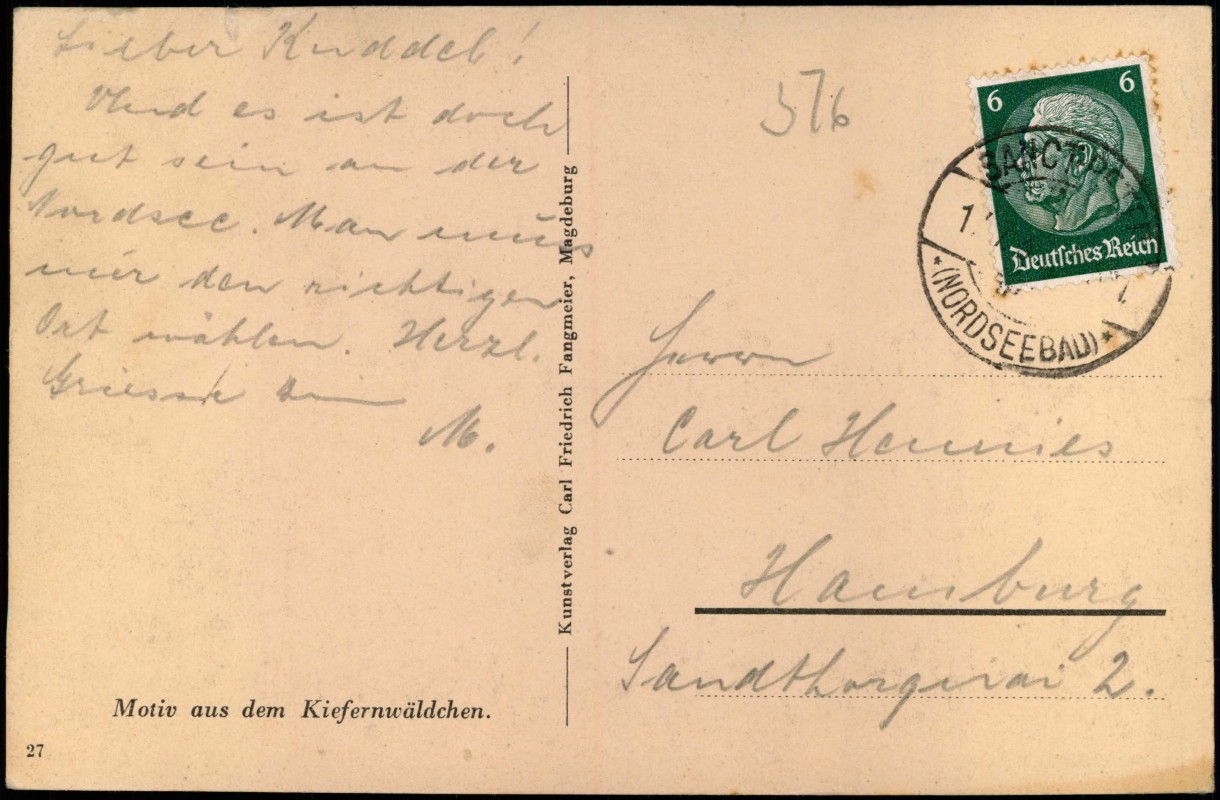 Lieber Kuddel!
Und es ist doch
gut sein an der
Nordsee. Man muss
nur den richtigen
Ort wählen. Herzl.
Griesse
M.
Motiv aus dem Kiefernwäldchen.
27
Kunstverlag Carl Friedrich Fangmeier, Magdeburg
576
6 6
Deutsches Reich
SANCT
(NORDSEEBAD)
Herrn
Carl Hennies
Hamburg
Sandthorquai 2.